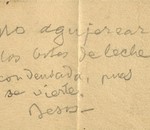 No agujerear
los botes de leche
condensada, pues
se vierte.
Besos